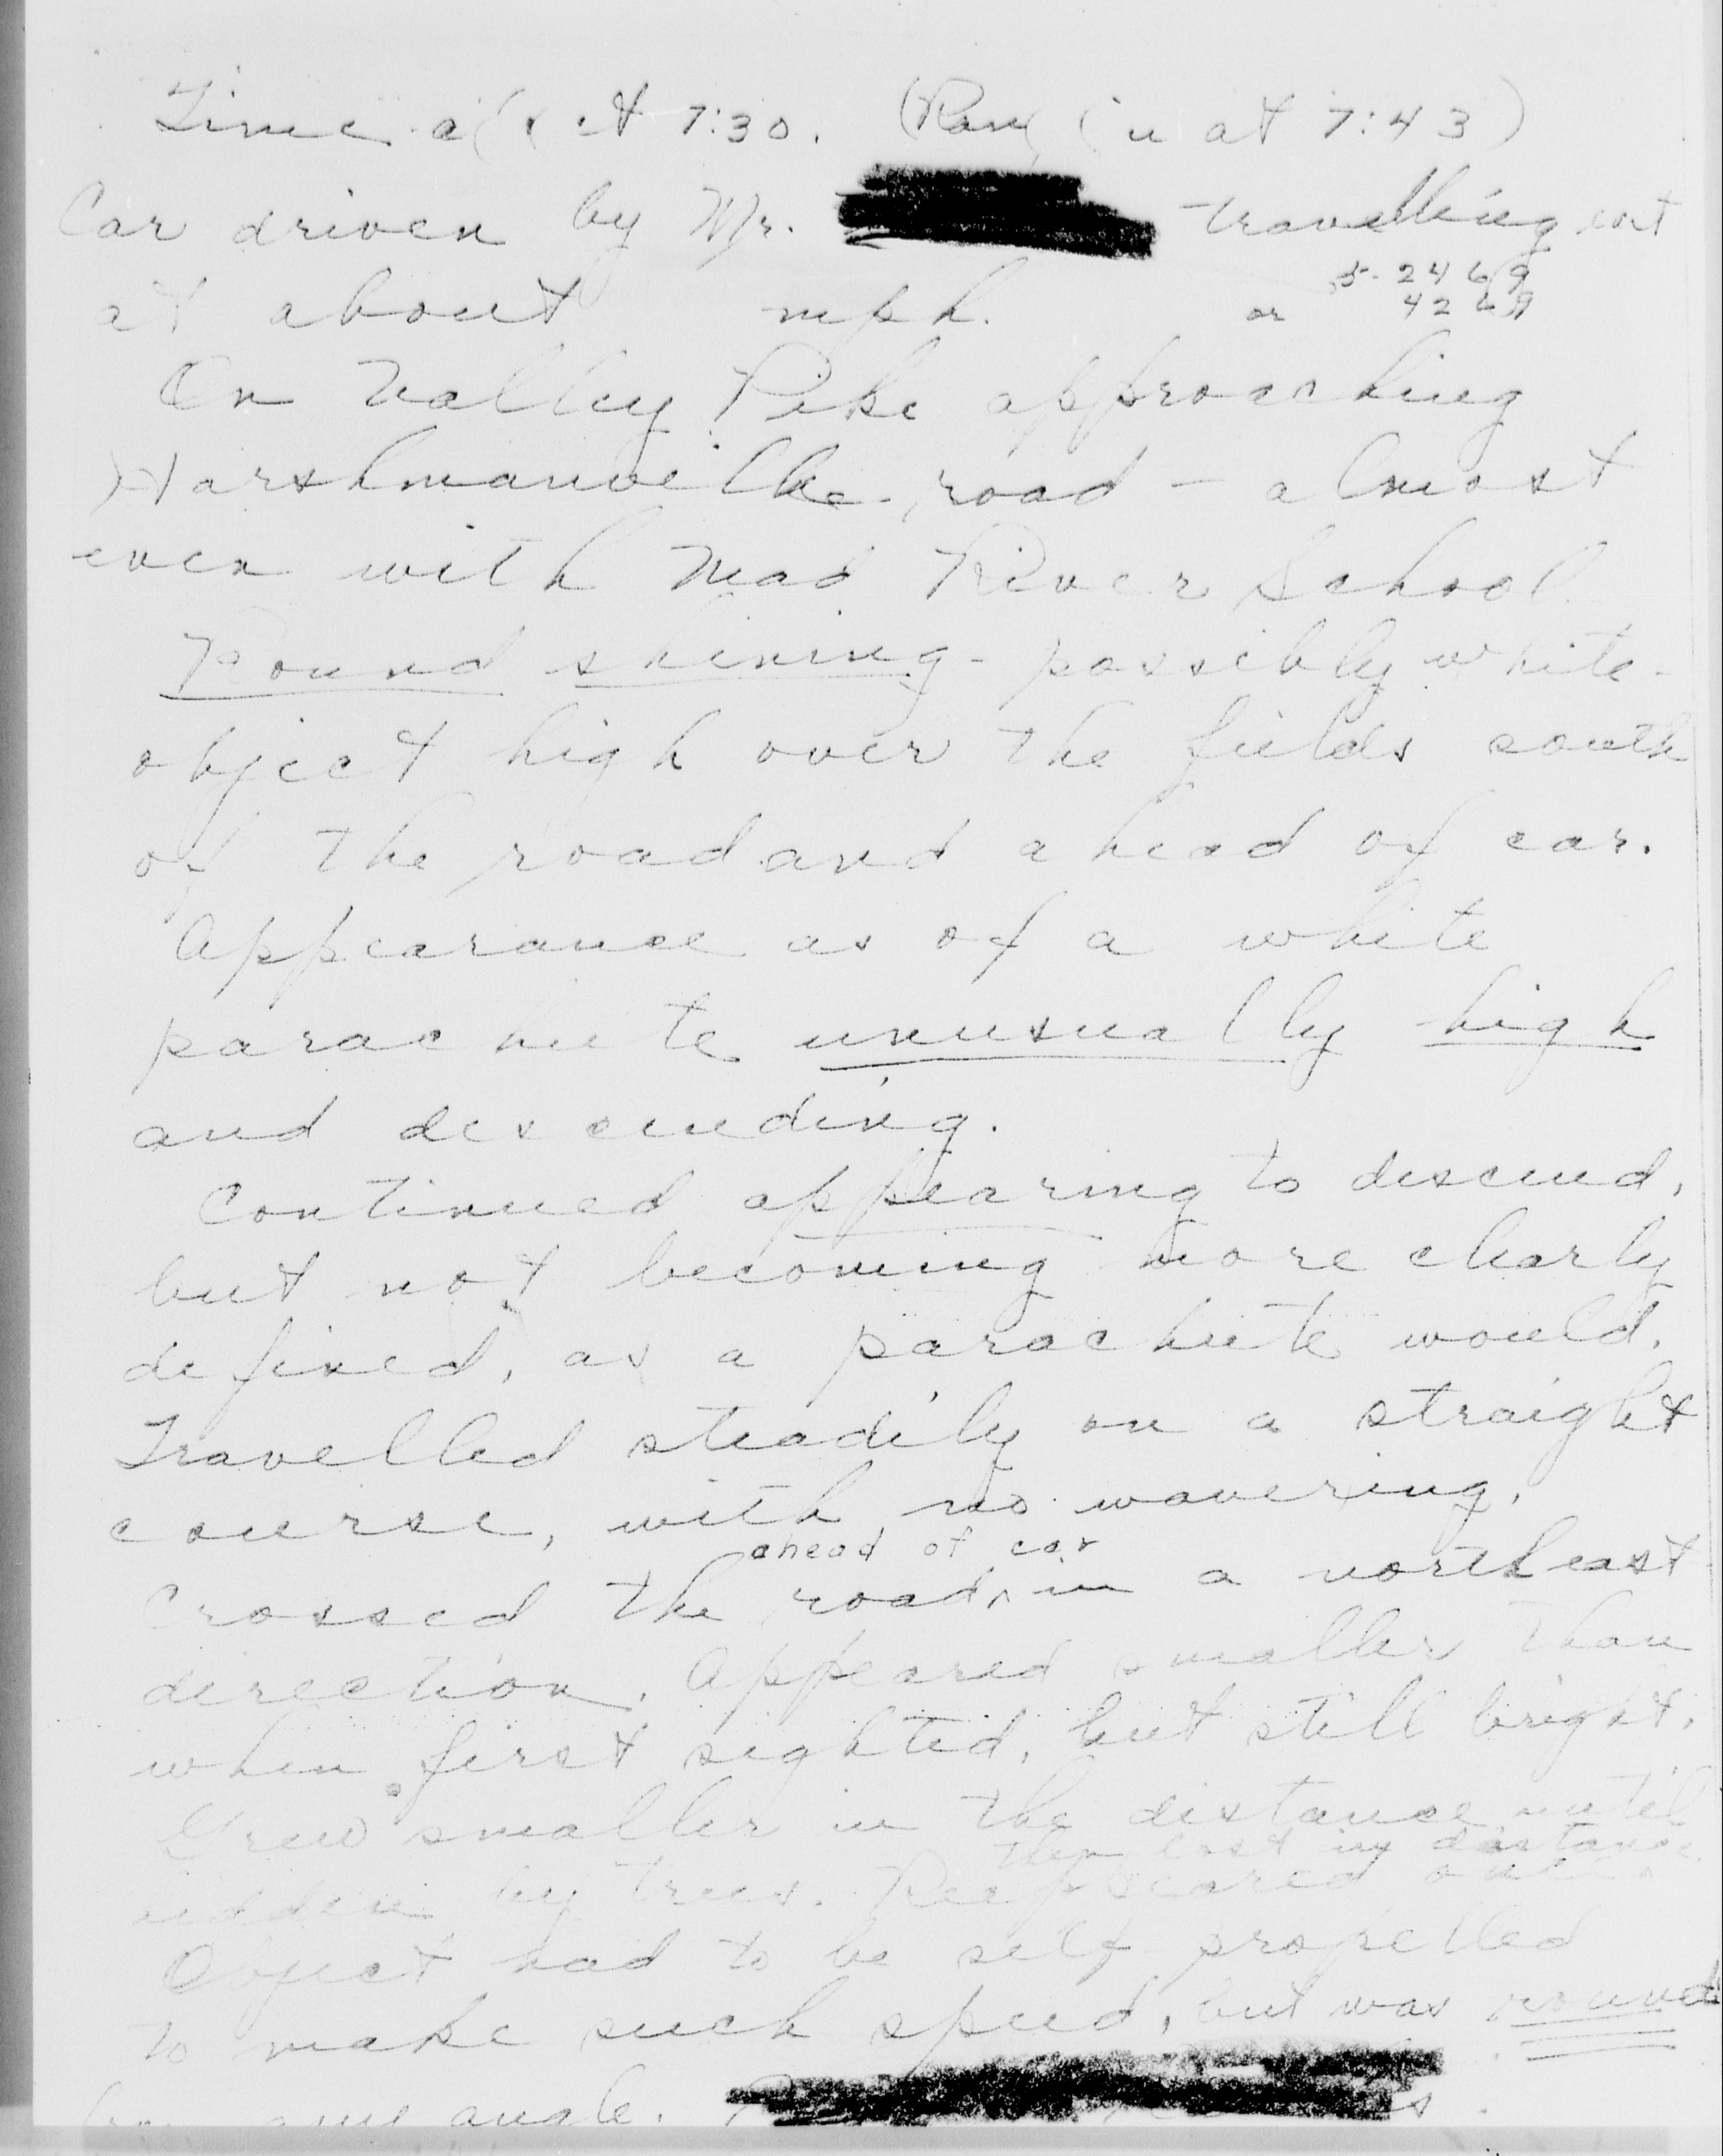 Time at 7:30. (Ran in at 7:43)
Car driven by Mr. travelling
5-2469
at about mph. or 4269
On Valley Pike approaching
Harshmanville road – almost
even with Mad River School.
Round shining - possibly white -
object high over the fields south
of the road and ahead of car.
Appearance as of a white
parachute unusually high
and descending.
Continued appearing to descend,
but not becoming more clearly
defined, as a parachute would.
Travelled steadily on a straight
course, with no wavering.
ahead of car
Crossed the road in a northeast
direction. Appeared smaller than
when first sighted, but still bright.
Grew smaller in the distance until
then lost in distance
hidden by trees. Reappeared
Object had to be self propelled
to make such speed, but was round
angle.